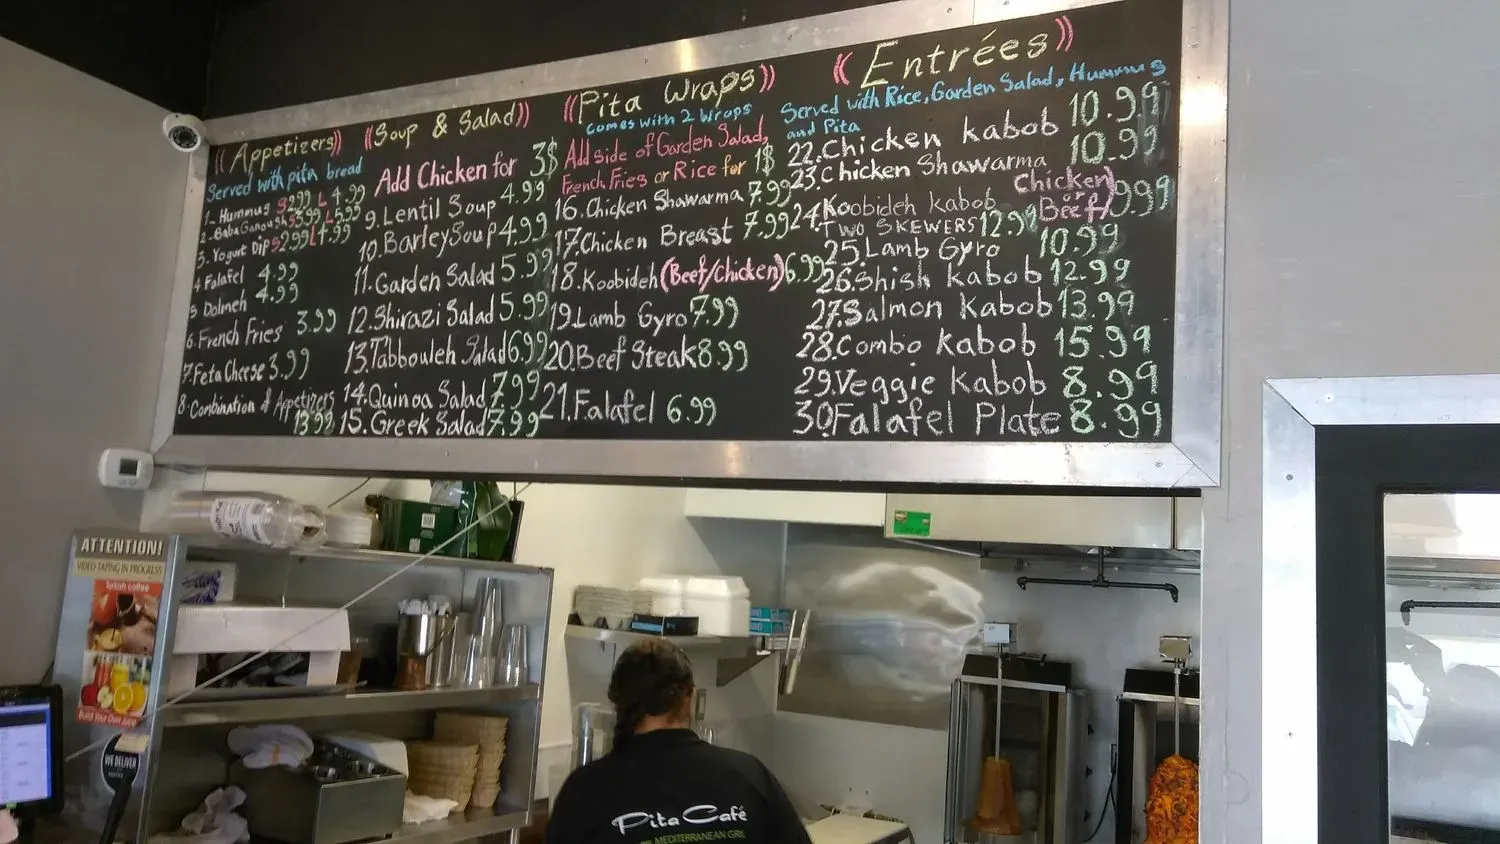 ((Appetizers))
Served with pita bread
1. Hummus S 2.99 L 4.99
2. Baba Ganoush S 3.99 L 5.99
3. Yogurt Dip S 2.99 L 4.99
4 Falafel 4.99
5 Dolmeh 4.99
6. French Fries 3.99
7. Feta Cheese 3.99
8. Combination of Appetizers
13.99
((Soup & Salad))
Add Chicken for 3$
9. Lentil Soup 4.99
10. Barley Soup 4.99
11. Garden Salad 5.99
12. Shirazi Salad 5.99
13. Tabbouleh Salad 6.99
14. Quinoa Salad 7.99
15. Greek Salad 7.99
((Pita Wraps))
comes with 2 wraps
Add side of Garden Salad,
French Fries or Rice for 1$
16. Chicken Shawarma 7.99
17. Chicken Breast 7.99
18. Koobideh (Beef/Chicken) 6.99
19. Lamb Gyro 7.99
20. Beef Steak 8.99
21. Falafel 6.99
((Entrées))
Served with Rice, Garden Salad, Hummus
and Pita
22. Chicken Kabob 10.99
23. Chicken Shawarma 10.99
24. Koobideh Kabob (Chicken or Beef) 9.99
TWO SKEWERS 12.99
25. Lamb Gyro 10.99
26. Shish Kabob 12.99
27. Salmon Kabob 13.99
28. Combo Kabob 15.99
29. Veggie Kabob 8.99
30. Falafel Plate 8.99
ATTENTION!
VIDEO TAPING IN PROGRESS
Turkish coffee
Build Your Own Juice
WE DELIVER
Pita Café
MEDITERRANEAN GRILL